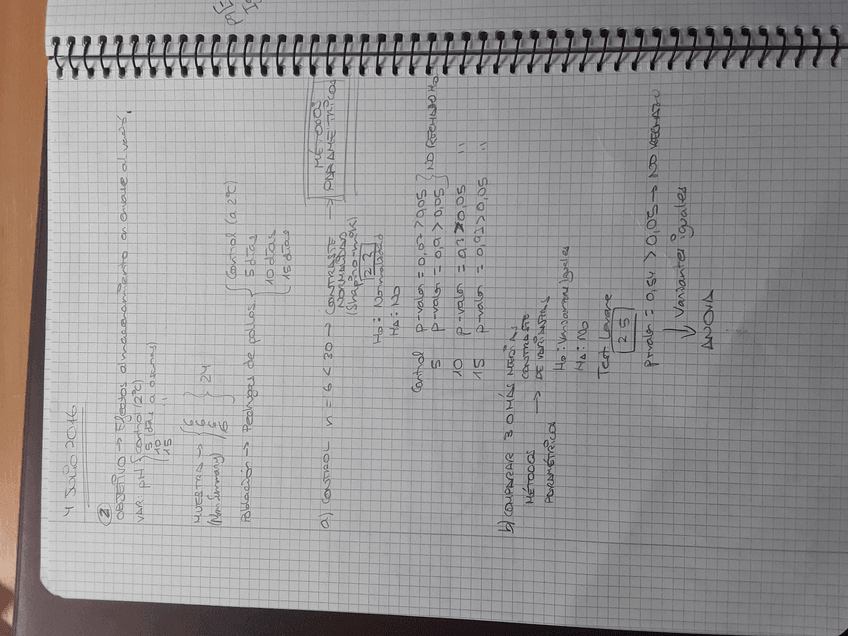 4 Julio 2016
②
OBJETIVO → Efectos almacenamiento en envase al vacío.
VAR: pH { control (2ºC)
5 días a oscuras
10
15 "
MUESTRAS → { 6 6 6 6 } 24
(Num Summary)
Población → Pechugas de pollos. { Control (a 2ºC)
5 días
10 días
15 días
a) CONTROL n = 6 < 30 → CONTRASTE NORMALIDAD → MÉTODOS PARAMÉTRICOS
(Shapiro-Wilk)
23
H₀: Normalidad
HA: NO
Control p-valor = 0,07 > 0,05 } NO RECHAZO H₀
5 p-valor = 0,9 > 0,05
10 p-valor = 0,3 > 0,05 "
15 p-valor = 0,93 > 0,05 "
b) COMPARAR 3 O MÁS MEDIAS
MÉTODOS PARAMÉTRICOS → CONTRASTE DE VARIANZAS
H₀: Varianzas Iguales
HA: NO
Test Levene
25
P-valor = 0,54 > 0,05 → NO RECHAZO
↓ Varianzas iguales
ANOVA